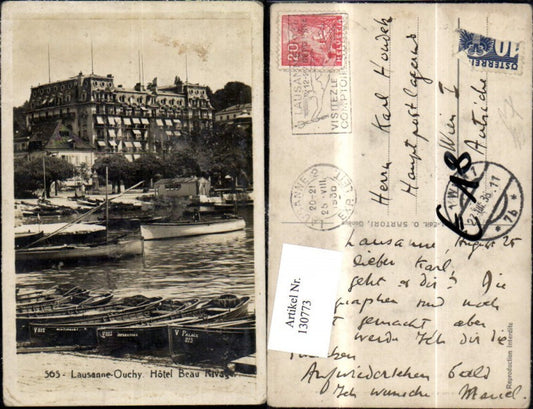 565 - Lausanne-Ouchy. Hôtel Beau Rivage
20
HELVETIA
LAUSANNE
VISITEZ LE
COMPTOIR
20-21
25.VIII
Herrn Karl Houdek
Hauptpostlagernd
Wien I
Autriche
ÖSTERREICH
10
WIEN
7b
O. SARTORI, Genève
Reproduction interdite
Artikel Nr.
130773
Lausanne August 25
Lieber Karl
geht es dir? Die
graphen sind noch
gemacht aber
werde Ich dir die
Aufwiedersehen bald
Ich wunsche Marcel.